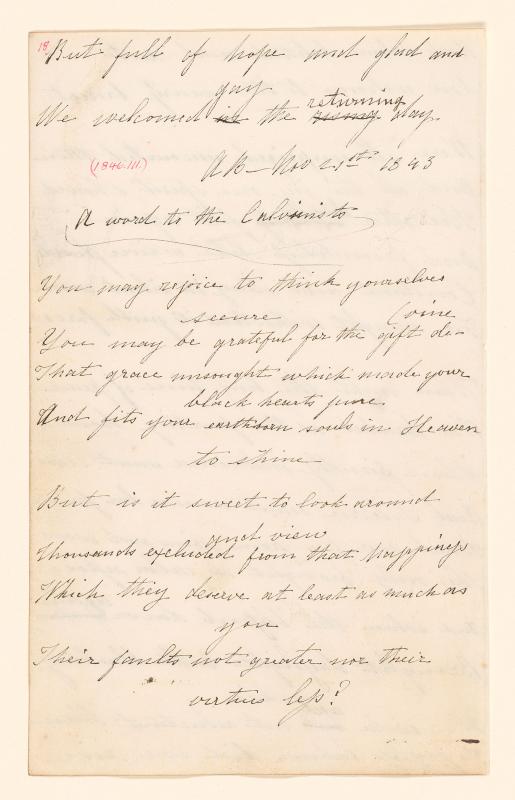 18
But full of hope and glad and
gay
We welcomed in the rising returning day
(1846.111.)
AB - Nov 21st 1843
A word to the Calvinists
You may rejoice to think yourselves
secure
You may be grateful for the gift de-
(vine
That grace unsought which made your
black hearts pure
And fits your earthborn souls in Heaven
to shine
But is it sweet to look around
and view
Thousands excluded from that happiness
Which they deserve at least as much as
you
Their faults not greater nor their
virtues less?